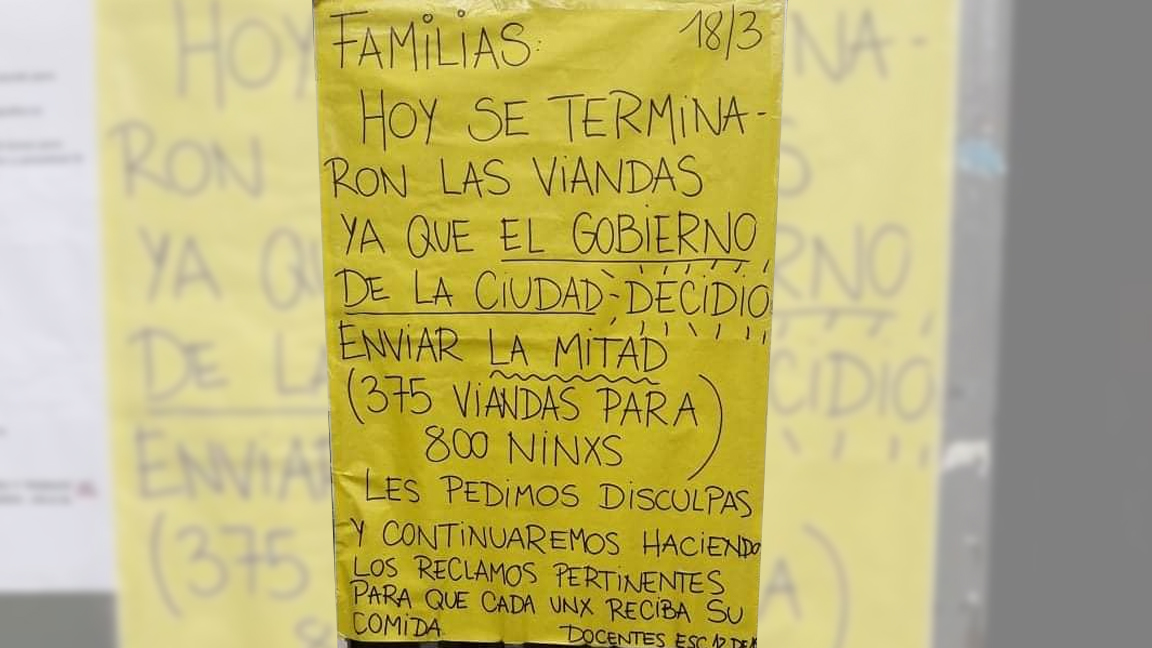 FAMILIAS: 18/3
HOY SE TERMINA-
RON LAS VIANDAS
YA QUE EL GOBIERNO
DE LA CIUDAD DECIDIO
ENVIAR LA MITAD
(375 VIANDAS PARA
800 NINXS)
LES PEDIMOS DISCULPAS
Y CONTINUAREMOS HACIENDO
LOS RECLAMOS PERTINENTES
PARA QUE CADA UNX RECIBA SU
COMIDA
DOCENTES ESC 12 DE